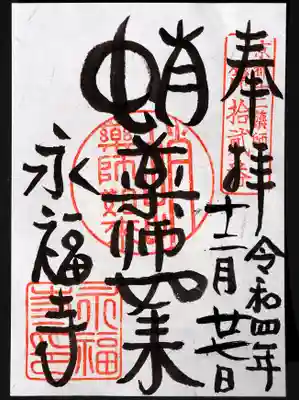 奉拝
令和四年
十二月廿七日
蛸薬師如来
永福寺
拾貳番
永福寺印